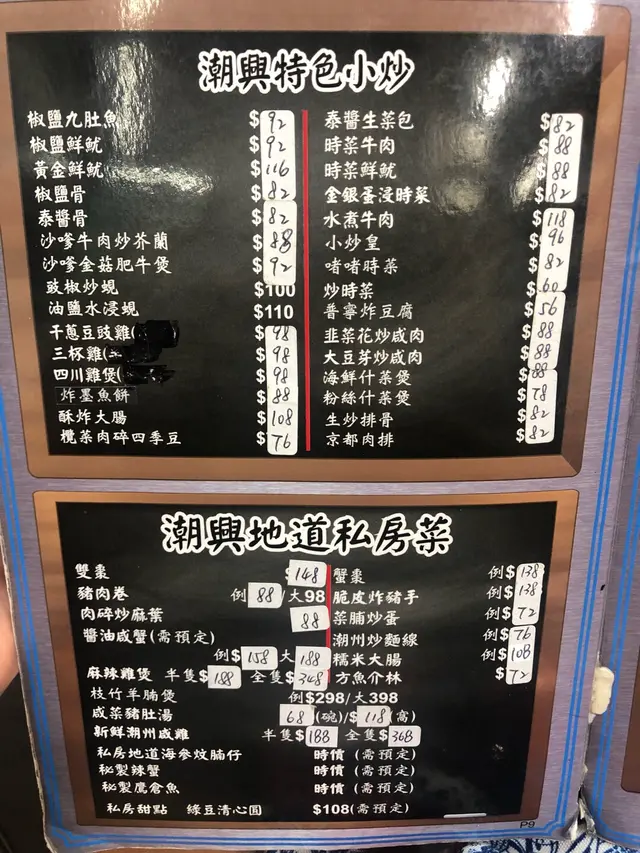 潮興特色小炒
椒鹽九肚魚 $92
椒鹽鮮魷 $92
黃金鮮魷 $116
椒鹽骨 $82
泰醬骨 $82
沙嗲牛肉炒芥蘭 $88
沙嗲金菇肥牛煲 $92
豉椒炒蜆 $100
油鹽水浸蜆 $110
干蔥豆豉雞( $98
三杯雞( $98
四川雞煲( $98
炸墨魚餅 $88
酥炸大腸 $108
欖菜肉碎四季豆 $76
泰醬生菜包 $82
時菜牛肉 $88
時菜鮮魷 $88
金銀蛋浸時菜 $82
水煮牛肉 $118
小炒皇 $96
啫啫時菜 $82
炒時菜 $60
普寧炸豆腐 $56
韭菜花炒咸肉 $88
大豆芽炒咸肉 $88
海鮮什菜煲 $88
粉絲什菜煲 $78
生炒排骨 $82
京都肉排 $82
潮興地道私房菜
雙棗 148
豬肉卷 例88/大98
肉碎炒麻葉 88
醬油咸蟹(需預定)
例$158 大188
麻辣雞煲 半隻$188 全隻$348
枝竹羊腩煲 例$298/大398
咸菜豬肚湯 68(碗)/$118(窩)
新鮮潮州咸雞 半隻$188 全隻$368
私房地道海參炆腩仔 時價(需預定)
秘製辣蟹 時價(需預定)
秘製鷹倉魚 時價(需預定)
私房甜點 綠豆清心圓 $108(需預定)
蟹棗 例$138
脆皮炸豬手 例$138
菜脯炒蛋 例$72
潮州炒麵線 例$76
糯米大腸 例$108
方魚介林 $72
P9